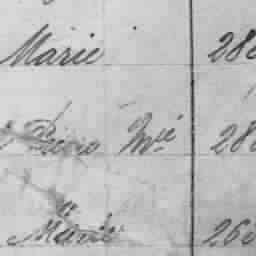 Marie 28
Pierre Mié 28
Marie 26